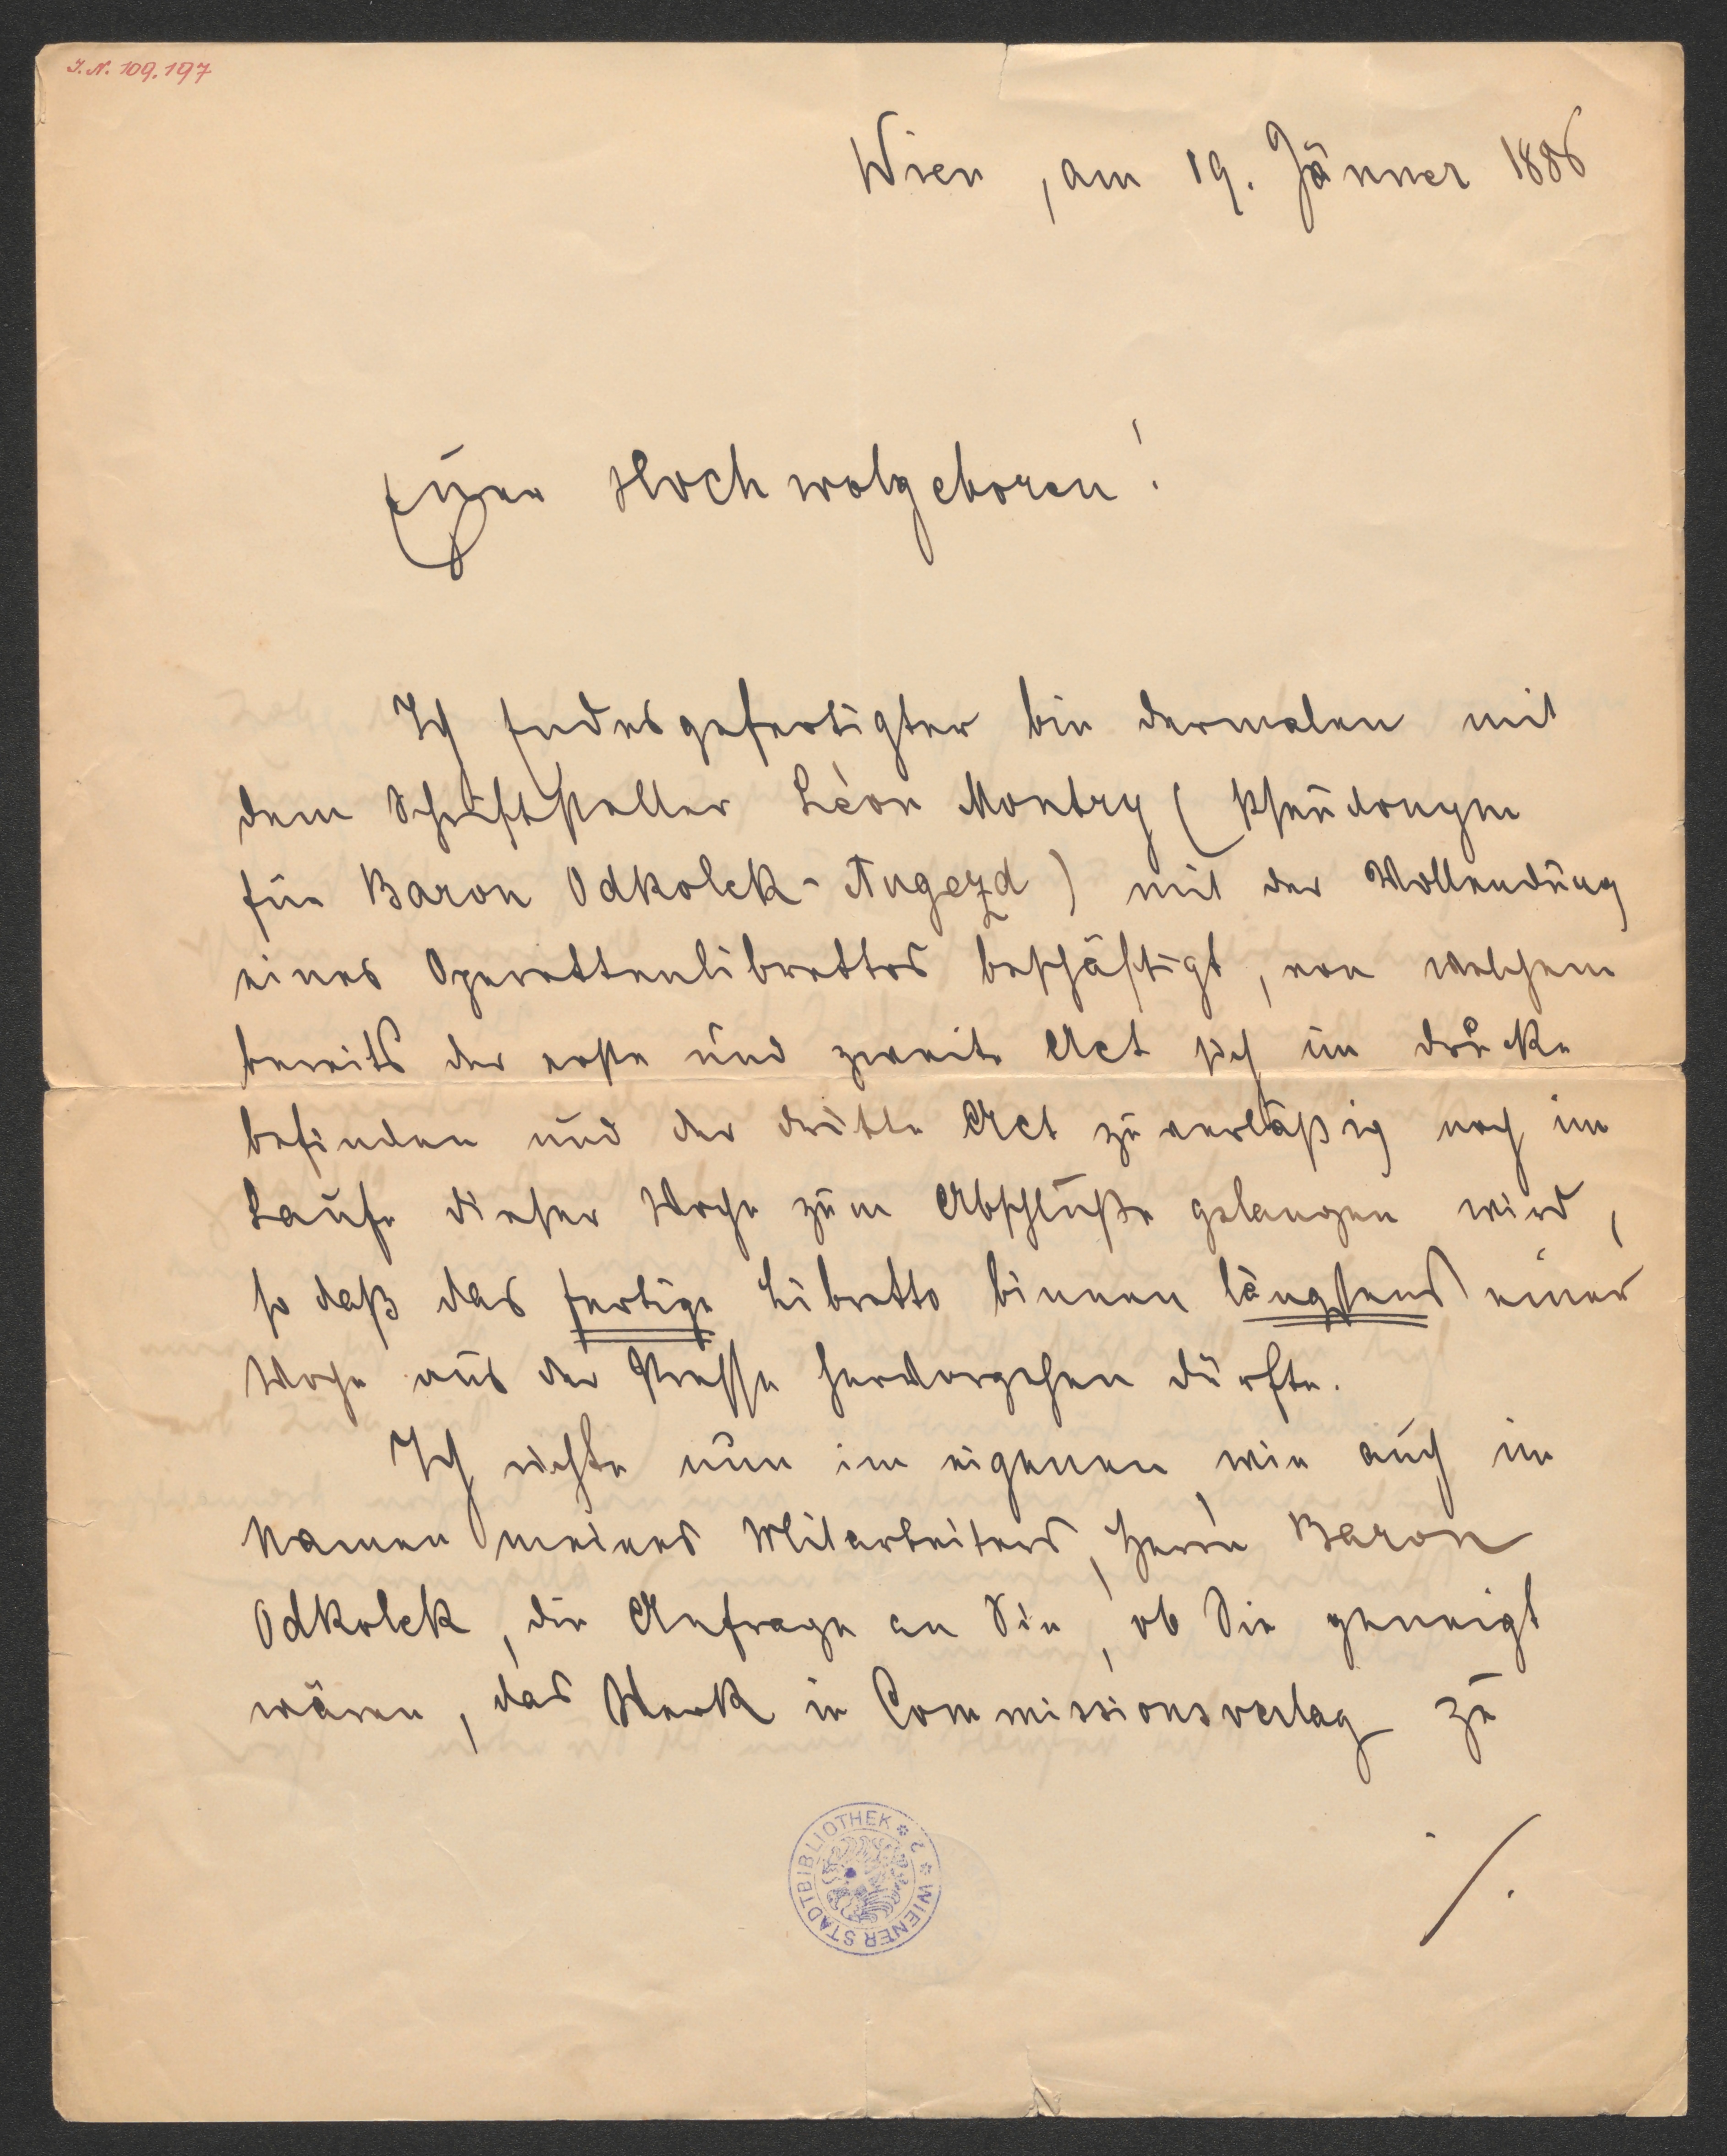 I.N. 109.197
Wien, am 19. Jänner 1886
Euer Hochwolgeboren!
Ich Endesgefertigter bin dermalen mit
dem Schriftsteller Lèon Montry (Pseudonym
für Baron Odkolek-Augezd) mit der Vollendung
eines Operettenlibrettos beschäftigt, von welchem
bereits der erste und zweite Act sich im Drucke
befinden und der dritte Act zuverläßig noch im
Laufe dieser Woche zum Abschluße gelangen wird,
so daß das fertige Libretto binnen längstens einer
Woche aus der Presse hervorgehen dürfte.
Ich richte nun im eigenen wie auch im
Namen meines Mitarbeiters, Herrn Baron
Odkolek, die Anfrage an Sie, ob Sie geneigt
wären, das Werk in Commissionsverlag zu
./.
WIENER STADTBIBLIOTHEK